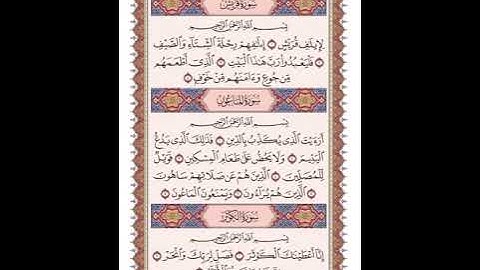 سُورَةُ قُرَيْشٍ
بِسْمِ اللَّهِ الرَّحْمَٰنِ الرَّحِيمِ
لِإِيلَٰفِ قُرَيْشٍ ۝ إِۦلَٰفِهِمْ رِحْلَةَ الشِّتَآءِ وَالصَّيْفِ
۝ فَلْيَعْبُدُوا رَبَّ هَٰذَا الْبَيْتِ ۝ الَّذِىٓ أَطْعَمَهُم
مِّن جُوعٍ وَءَامَنَهُم مِّنْ خَوْفٍۭ ۝
سُورَةُ الْمَاعُونِ
بِسْمِ اللَّهِ الرَّحْمَٰنِ الرَّحِيمِ
أَرَءَيْتَ الَّذِى يُكَذِّبُ بِالدِّينِ ۝ فَذَٰلِكَ الَّذِى يَدُعُّ
الْيَتِيمَ ۝ وَلَا يَحُضُّ عَلَىٰ طَعَامِ الْمِسْكِينِ ۝ فَوَيْلٌ
لِّلْمُصَلِّينَ ۝ الَّذِينَ هُمْ عَن صَلَاتِهِمْ سَاهُونَ
۝ الَّذِينَ هُمْ يُرَآءُونَ ۝ وَيَمْنَعُونَ الْمَاعُونَ ۝
سُورَةُ الْكَوْثَرِ
بِسْمِ اللَّهِ الرَّحْمَٰنِ الرَّحِيمِ
إِنَّآ أَعْطَيْنَٰكَ الْكَوْثَرَ ۝ فَصَلِّ لِرَبِّكَ وَانْحَرْ ۝